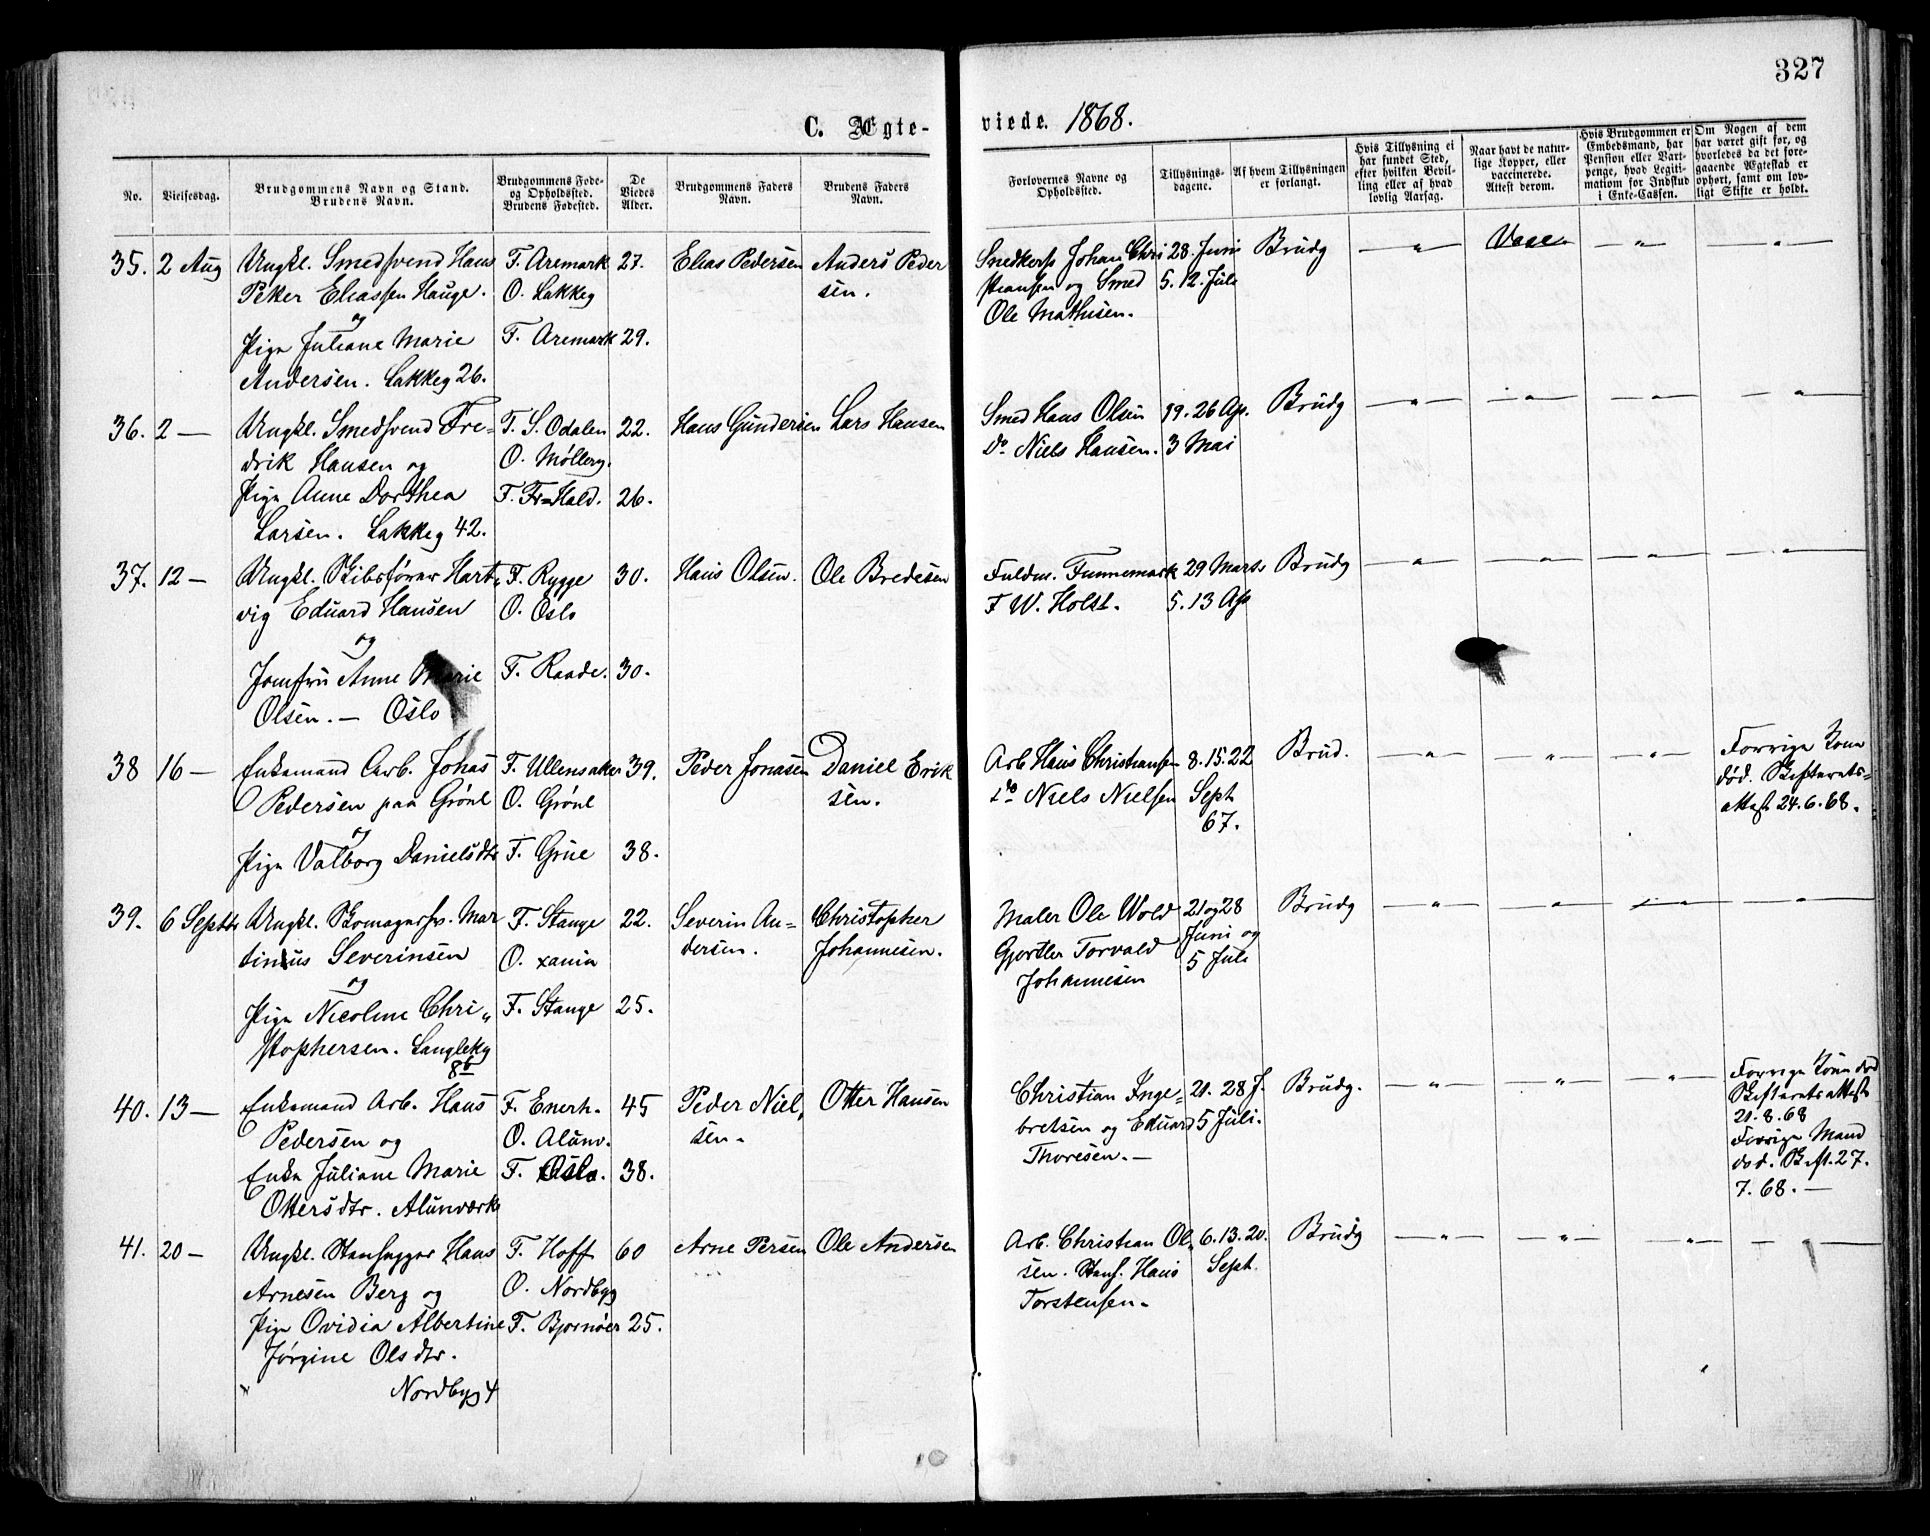 327
C. Ægte-
viede. 1868.
No.
Vielsesdag.
Brudgommens Navn og Stand.
Brudens Navn.
Brudgommens Føde-
og Opholdssted.
Brudens Fødested.
De
Viedes
Alder.
Brudgommens Faders
Navn.
Brudens Faders
Navn.
Forlovernes Navne og
Opholdssted.
Tillysnings-
dagene.
Af hvem Tillysningen
er forlangt.
Hvis Tillysning ei
har fundet Sted,
efter hvilken Bevil-
ling eller af hvad
lovlig Aarsag.
Naar havt de natur-
lige Kopper, eller
vaccinerede.
Attest derom.
Hvis Brudgommen er
Embedsmand, har
Pension eller Vart-
penge, hvad Legiti-
mation for Indskud
i Enke-Cassen.
Om Nogen af dem
har været gift før, og
hvorledes da det fore-
gaaende Ægteskab er
ophørt, samt om lov-
ligt Skifte er holdt.
35. 2 Aug Ungkl. Smedsvend Hans F. Aremark 27. Elias Pedersen Anders Peder Snedkers. Johan Chri 28. Juni Brudg — " — Vacc. — " — "
Peter Eliassen Hauge. O. Lakkeg sen. stiansen og Smed 5. 12. Juli
og Ole Mathisen.
Pige Juliane Marie F. Aremark 29.
Andersen. Lakkeg 26.
36. 2 — Ungkl. Smedsvend Fre- F. S. Odalen 22. Hans Gundersen Lars Hansen Smed Hans Olsen 19. 26 Ap. Brudg — " — " — " — "
drik Hansen og O. Møllerg. do Niels Hansen. 3 Mai
Pige Anne Dorthea F. Fr=Hald. 26.
Larsen. Lakkeg 42.
37. 12 — Ungkl. Skibsfører Hart- F. Rygge 30. Hans Olsen. Ole Bredesen Fuldm. Funnemark 29 Marts Brudg — " — " — " — "
vig Eduard Hansen O. Oslo F W. Holst. 5. 13 Ap
og
Jomfru Anne Marie F. Raade. 30.
Olsen. — Oslo
38 16 — Enkemand Arb. Johas F. Ullensaker 39. Peder Jonasen Daniel Erik Arb Hans Christiansen 8. 15. 22 Brud. — " — " — " — Forrige Kone
Pedersen paa Grønl O. Grønl sen. do Niels Nielsen Sept død. Skifterets-
og 67. attest 24. 6. 68.
Pige Valborg Danielsdtr F. Grue 38.
39. 6 Septbr Ungkl. Skomagersv. Mar F. Stange 22. Severin An- Christopher Maler Ole Wold 21 og 28 Brudg — " — " — " — "
tinius Severinsen O. xania dersen. Johannesen. Gjørtler Torvald Juni og
og Johannesen 5 Juli
Pige Nicoline Chri- F. Stange 25.
stophersen. Langleikg
8b
40. 13 — Enkemand Arb. Hans F. Enerh. 45 Peder Niel- Otter Hansen Christian Inge- 21. 28 J. Brudg. — " — " — " — Forrige Kone død
Pedersen og O. Alunv. sen. bretsen og Eduard 5 Juli. Skifterets attest
Thoresen. — 21. 8. 68
Enke Juliane Marie F. Oslo. 38. Forrige Mand
Ottersdtr. Alunværk død. Skft. 27.
7. 68. —
41. 20 — Ungkl. Stenhugger Hans F. Hoff 60 Arne Persen Ole Andersen Arb. Christian Ol- 6. 13. 20. Brudg — " — " — " — "
Arnesen Berg og O. Nordbyg sen. Stenh. Hans Sept.
Pige Ovidia Albertine F. Bjornøer 25. Torstensen.
Jørgine Olsdtr.
Nordbyg 4